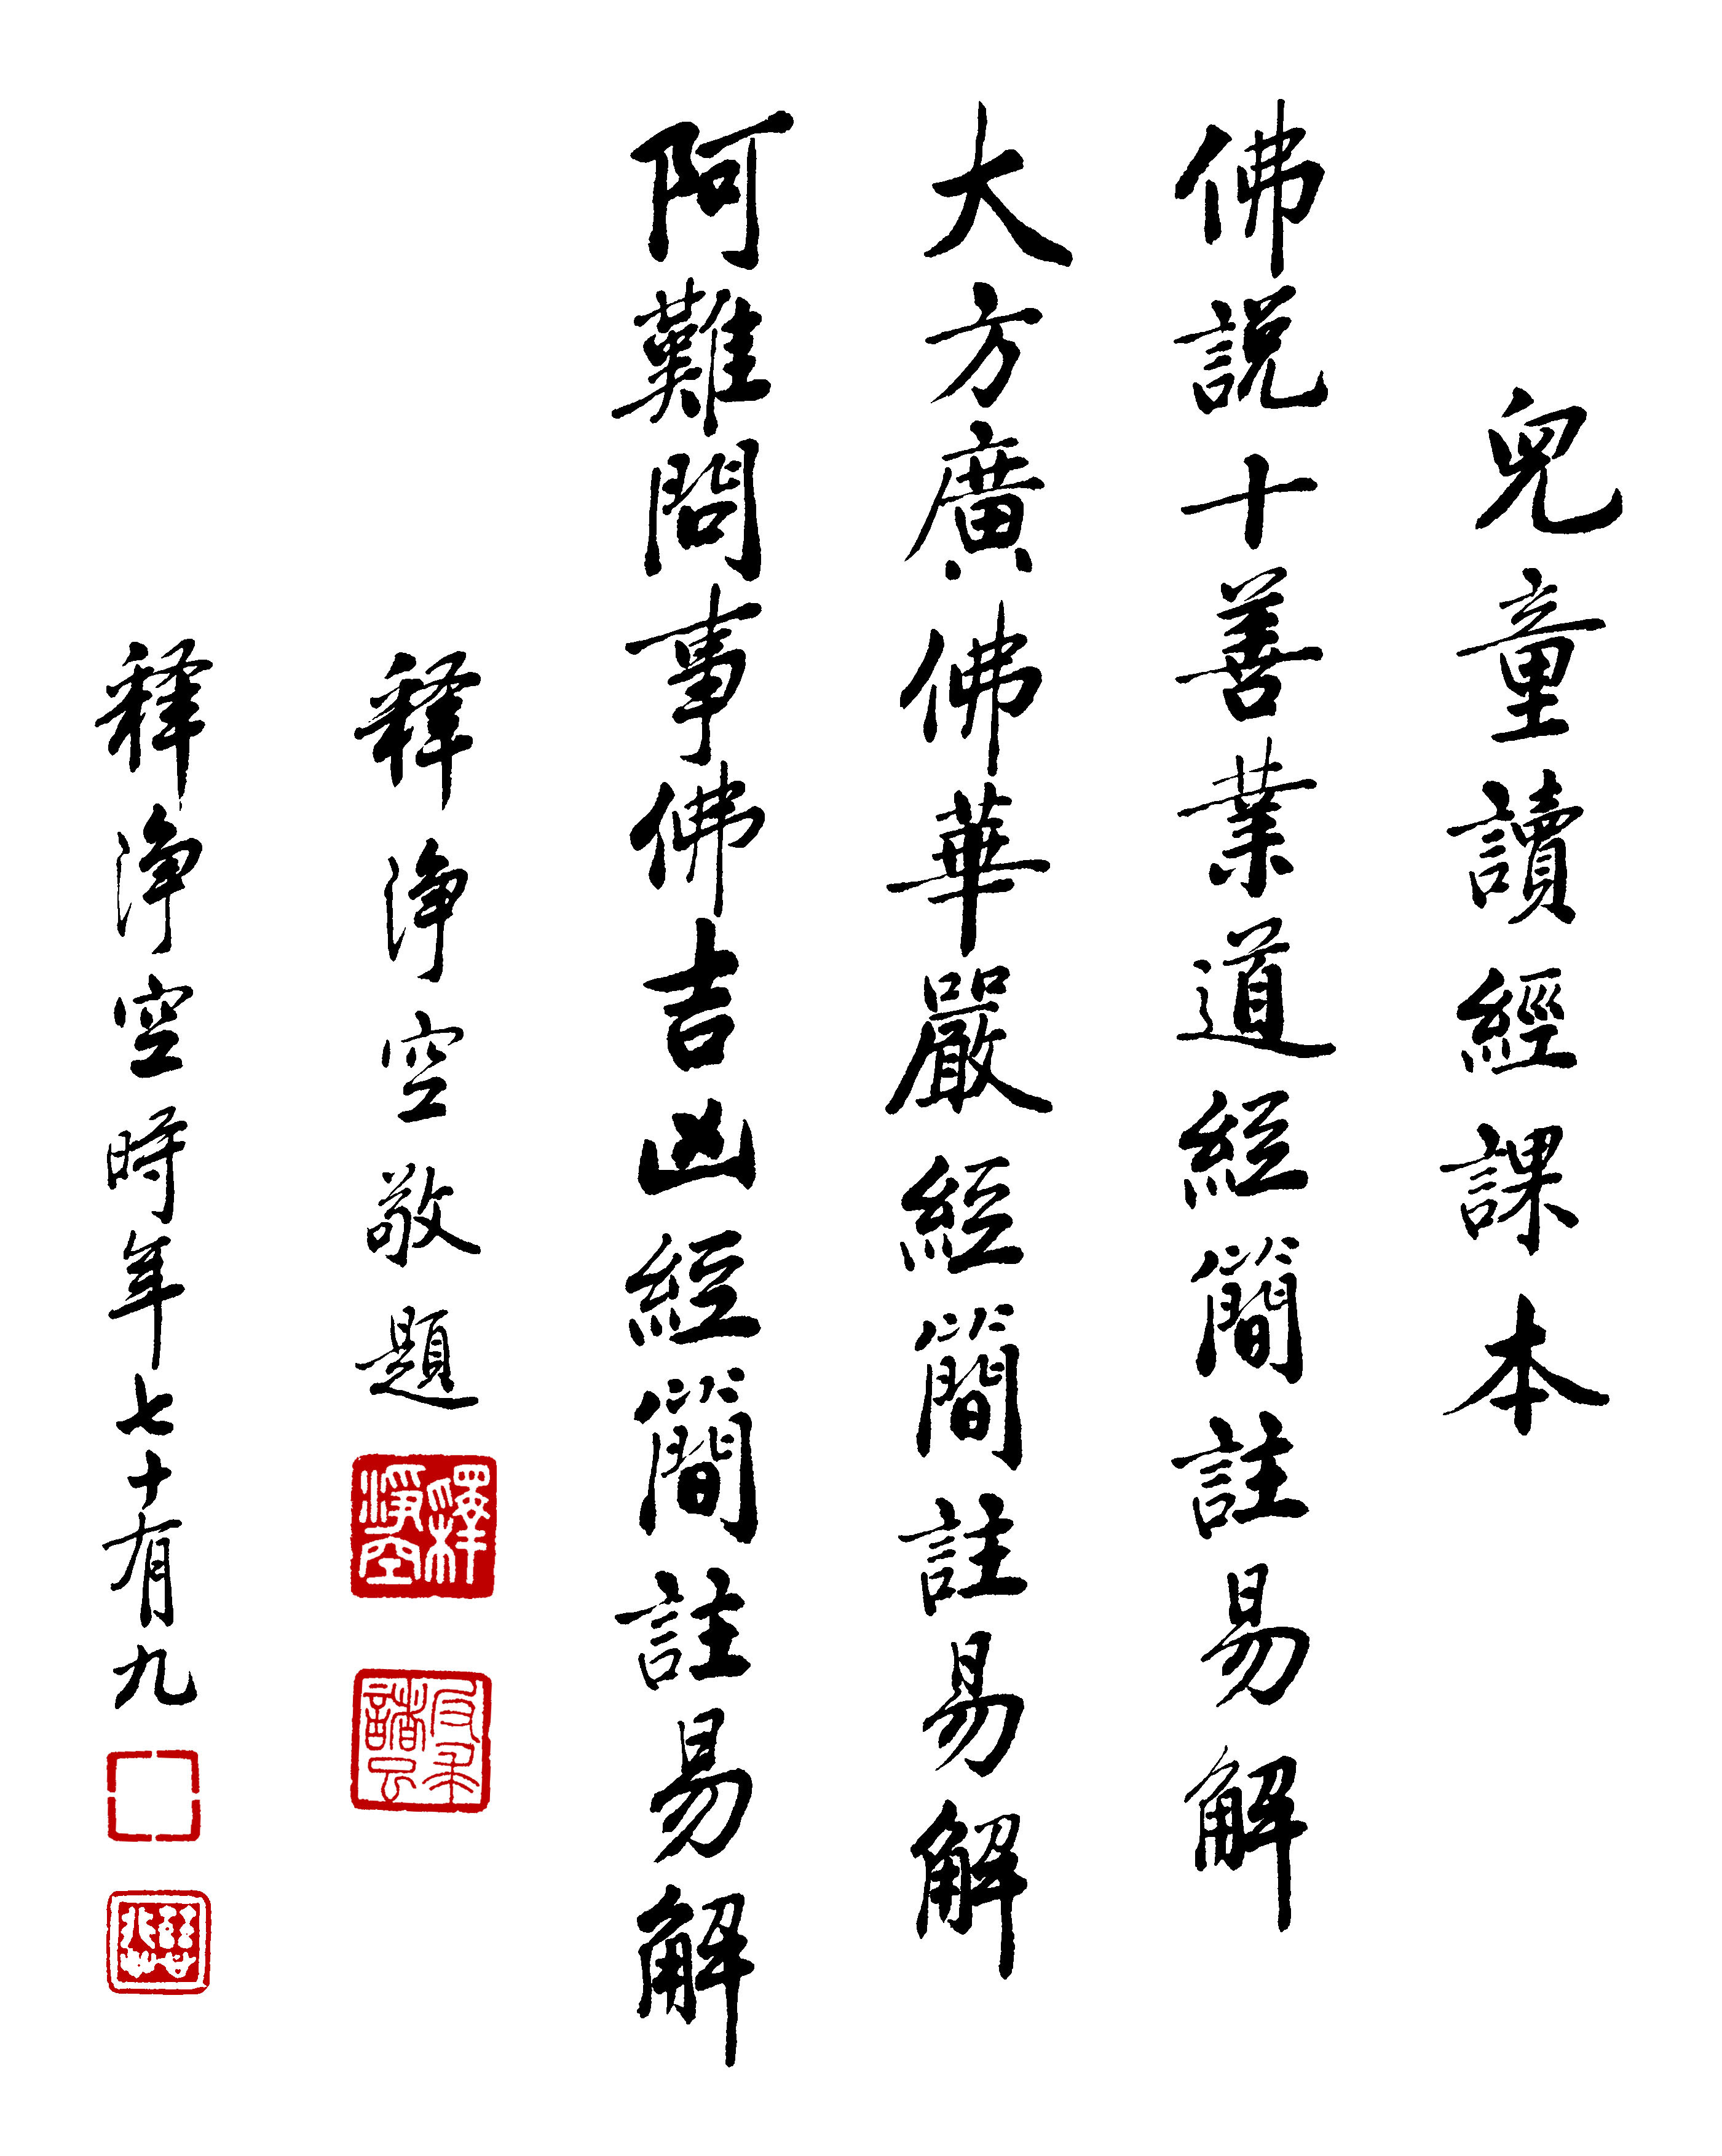 兒童讀經課本
佛説十善業道經簡註易解
大方廣佛華嚴經簡註易解
阿難問事佛吉凶經簡註易解
释淨空敬題
釋淨空
释淨空時年七十有九